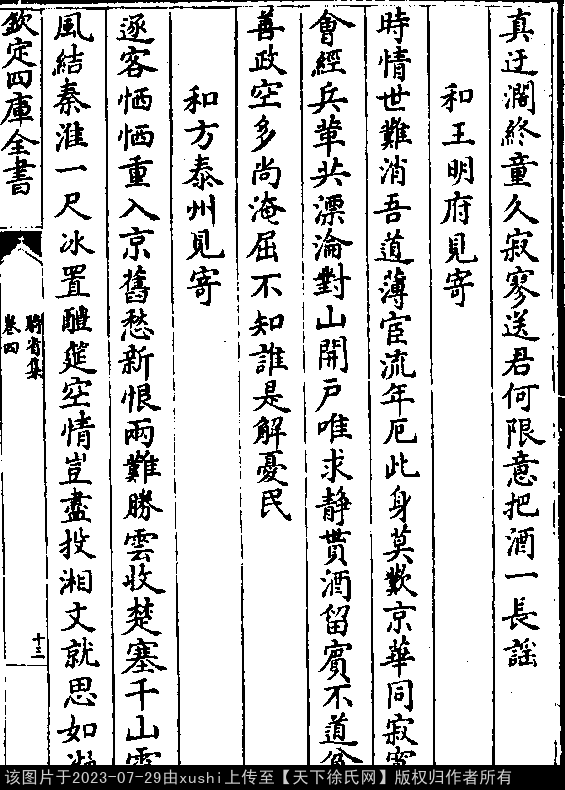 真迂濶終童久寂寥送君何限意把酒一長謡
和王明府見寄
時情世難消吾道薄宦流年厄此身莫歎京華同寂
會經兵革共漂淪對山開戸唯求静貰酒留賔不道
善政空多尚淹屈不知誰是解憂民
和方泰州見寄
逐客恓恓重入京舊愁新恨兩難勝雲收楚塞千山雪
風結秦淮一尺冰置醴筵空情豈盡投湘文就思如
欽定四庫全書
騎省集
卷四
十三
该图片于2023-07-29由xushi上传至【天下徐氏网】版权归作者所有